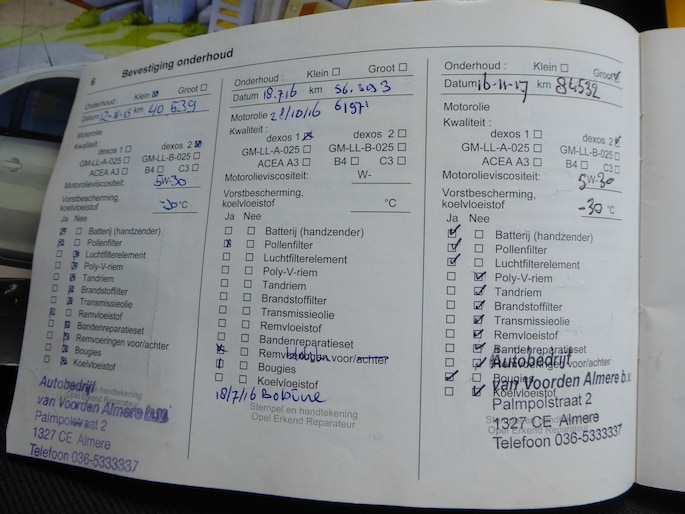 6 Bevestiging onderhoud
Onderhoud : Klein Groot
Datum km 40.639
Motorolie
Kwaliteit
dexos 1 dexos 2
GM-LL-A-025 GM-LL-B-025
ACEA A3 B4 C3
Motorolieviscositeit:
5W-30
Vorstbescherming,
koelvloeistof -30 °C
Ja Nee
Batterij (handzender)
Pollenfilter
Luchtfilterelement
Poly-V-riem
Tandriem
Brandstoffilter
Transmissieolie
Remvloeistof
Bandenreparatieset
Remvoeringen voor/achter
Bougies
Koelvloeistof
Autobedrijf
van Voorden Almere b.v.
Palmpolstraat 2
1327 CE Almere
Telefoon 036-5333337
Onderhoud : Klein Groot
Datum 18.7.16 km 56.303
Motorolie 28/10/16 61971
Kwaliteit :
dexos 1 dexos 2
GM-LL-A-025 GM-LL-B-025
ACEA A3 B4 C3
Motorolieviscositeit: W-
Vorstbescherming,
koelvloeistof °C
Ja Nee
Batterij (handzender)
Pollenfilter
Luchtfilterelement
Poly-V-riem
Tandriem
Brandstoffilter
Transmissieolie
Remvloeistof
Bandenreparatieset
Remblokken voor/achter
Bougies
Koelvloeistof
18/7/16 Bobine
Stempel en handtekening
Opel Erkend Reparateur
Onderhoud : Klein Groot
Datum 16-11-17 km 84532
Motorolie
Kwaliteit :
dexos 1 dexos 2
GM-LL-A-025 GM-LL-B-025
ACEA A3 B4 C3
Motorolieviscositeit:
5W-30
Vorstbescherming,
koelvloeistof -30 °C
Ja Nee
Batterij (handzender)
Pollenfilter
Luchtfilterelement
Poly-V-riem
Tandriem
Brandstoffilter
Transmissieolie
Remvloeistof
Bandenreparatieset
Remvoeringen voor/achter
Bougies
Koelvloeistof
Autobedrijf
van Voorden Almere b.v.
Palmpolstraat 2
1327 CE Almere
Opel Erkend Reparateur
Telefoon 036-5333337